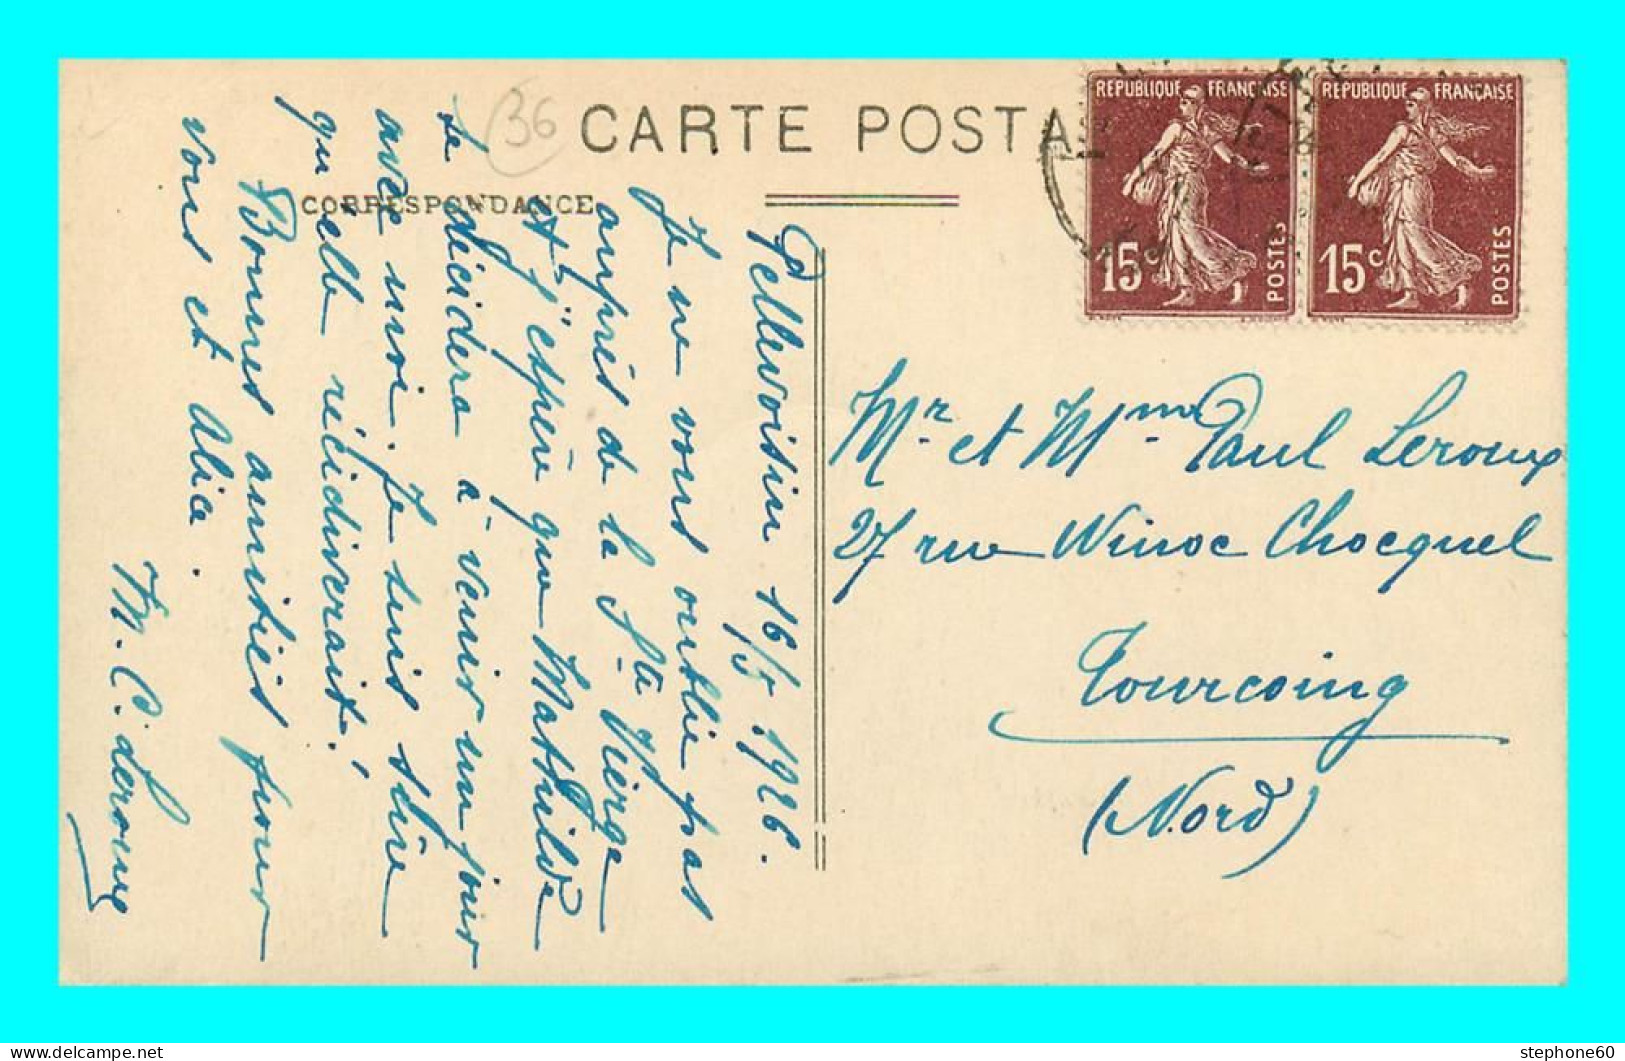 36
CARTE POSTA
CORRESPONDANCE
RÉPUBLIQUE FRANÇAISE
15c
POSTES
RÉPUBLIQUE FRANÇAISE
15c
POSTES
Pellevoisin 16/5 1926.
Je ne vous oublie pas
auprès de la Ste Vierge
et j'espère que Mathilde
se décidera à venir un jour
avec moi. Je suis sûre
qu'elle récidiverait!
Bonnes amitiés pour
vous et Alice.
M. C. Leroux
Mr et Mme Paul Leroux
27 rue Winoc Chocquel
Tourcoing
(Nord)
stephone60